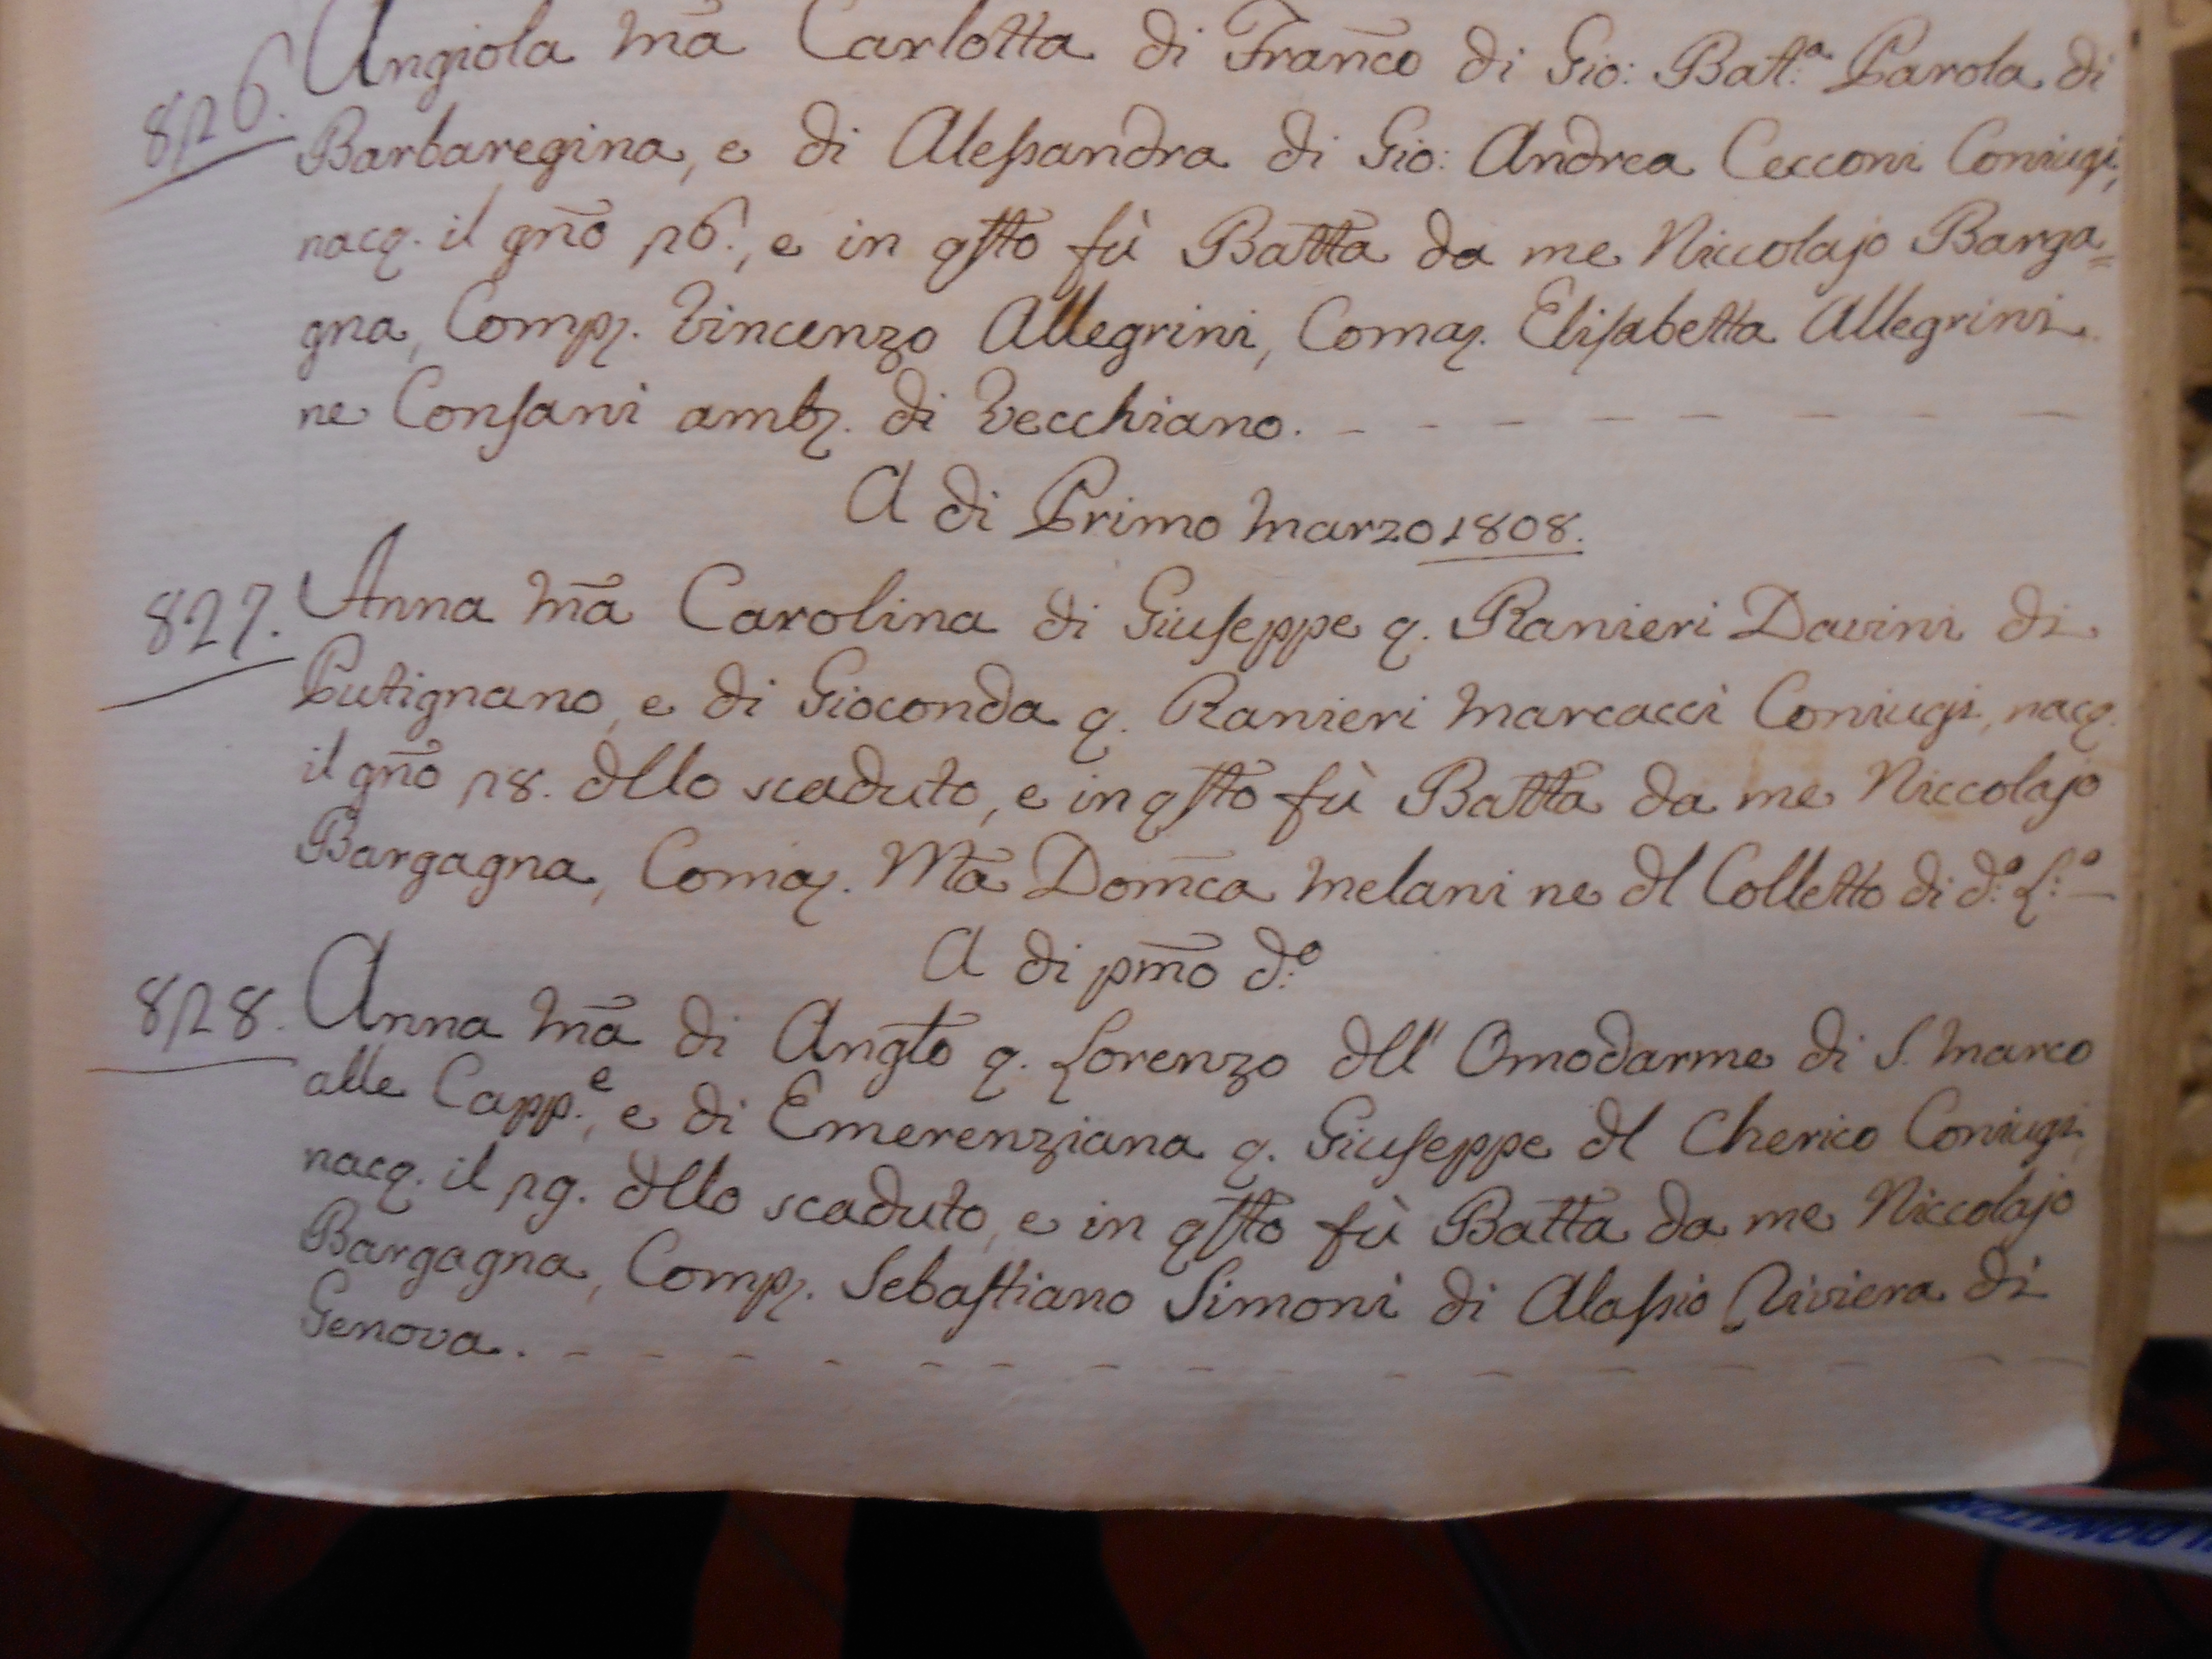 826. Angiola Mā Carlotta di Franc̄o di Gio: Batt.ª Parola di
Barbaregina, e di Alessandra di Gio: Andrea Cecconi Coniugi,
nacq. il gñō 26., e in qsto fù Batta da me Niccolajo Barga=
gna, Comp. Vincenzo Allegrini, Coma. Elisabetta Allegrini
ne Consani amb. di Vecchiano.
A di Primo Marzo 1808.
827. Anna Mā Carolina di Giuseppe q. Ranieri Davini di
Putignano, e di Gioconda q. Ranieri Marcacci Coniugi, nacq.
il gñō 28. dllo scaduto, e in qsto fù Batta da me Niccolajo
Bargagna, Coma. Mā Dom̄ca Melani ne dl Colletto di d.º L.º
A di pm̄o d.º
828. Anna Mā di Anglo q. Lorenzo dll' Omodarme di S. Marco
alle Capp.e, e di Emerenziana q. Giuseppe dl Cherico Coniugi,
nacq. il 29. dllo scaduto, e in qsto fù Batta da me Niccolajo
Bargagna, Comp. Sebastiano Simoni di Alassio Riviera di
Genova.